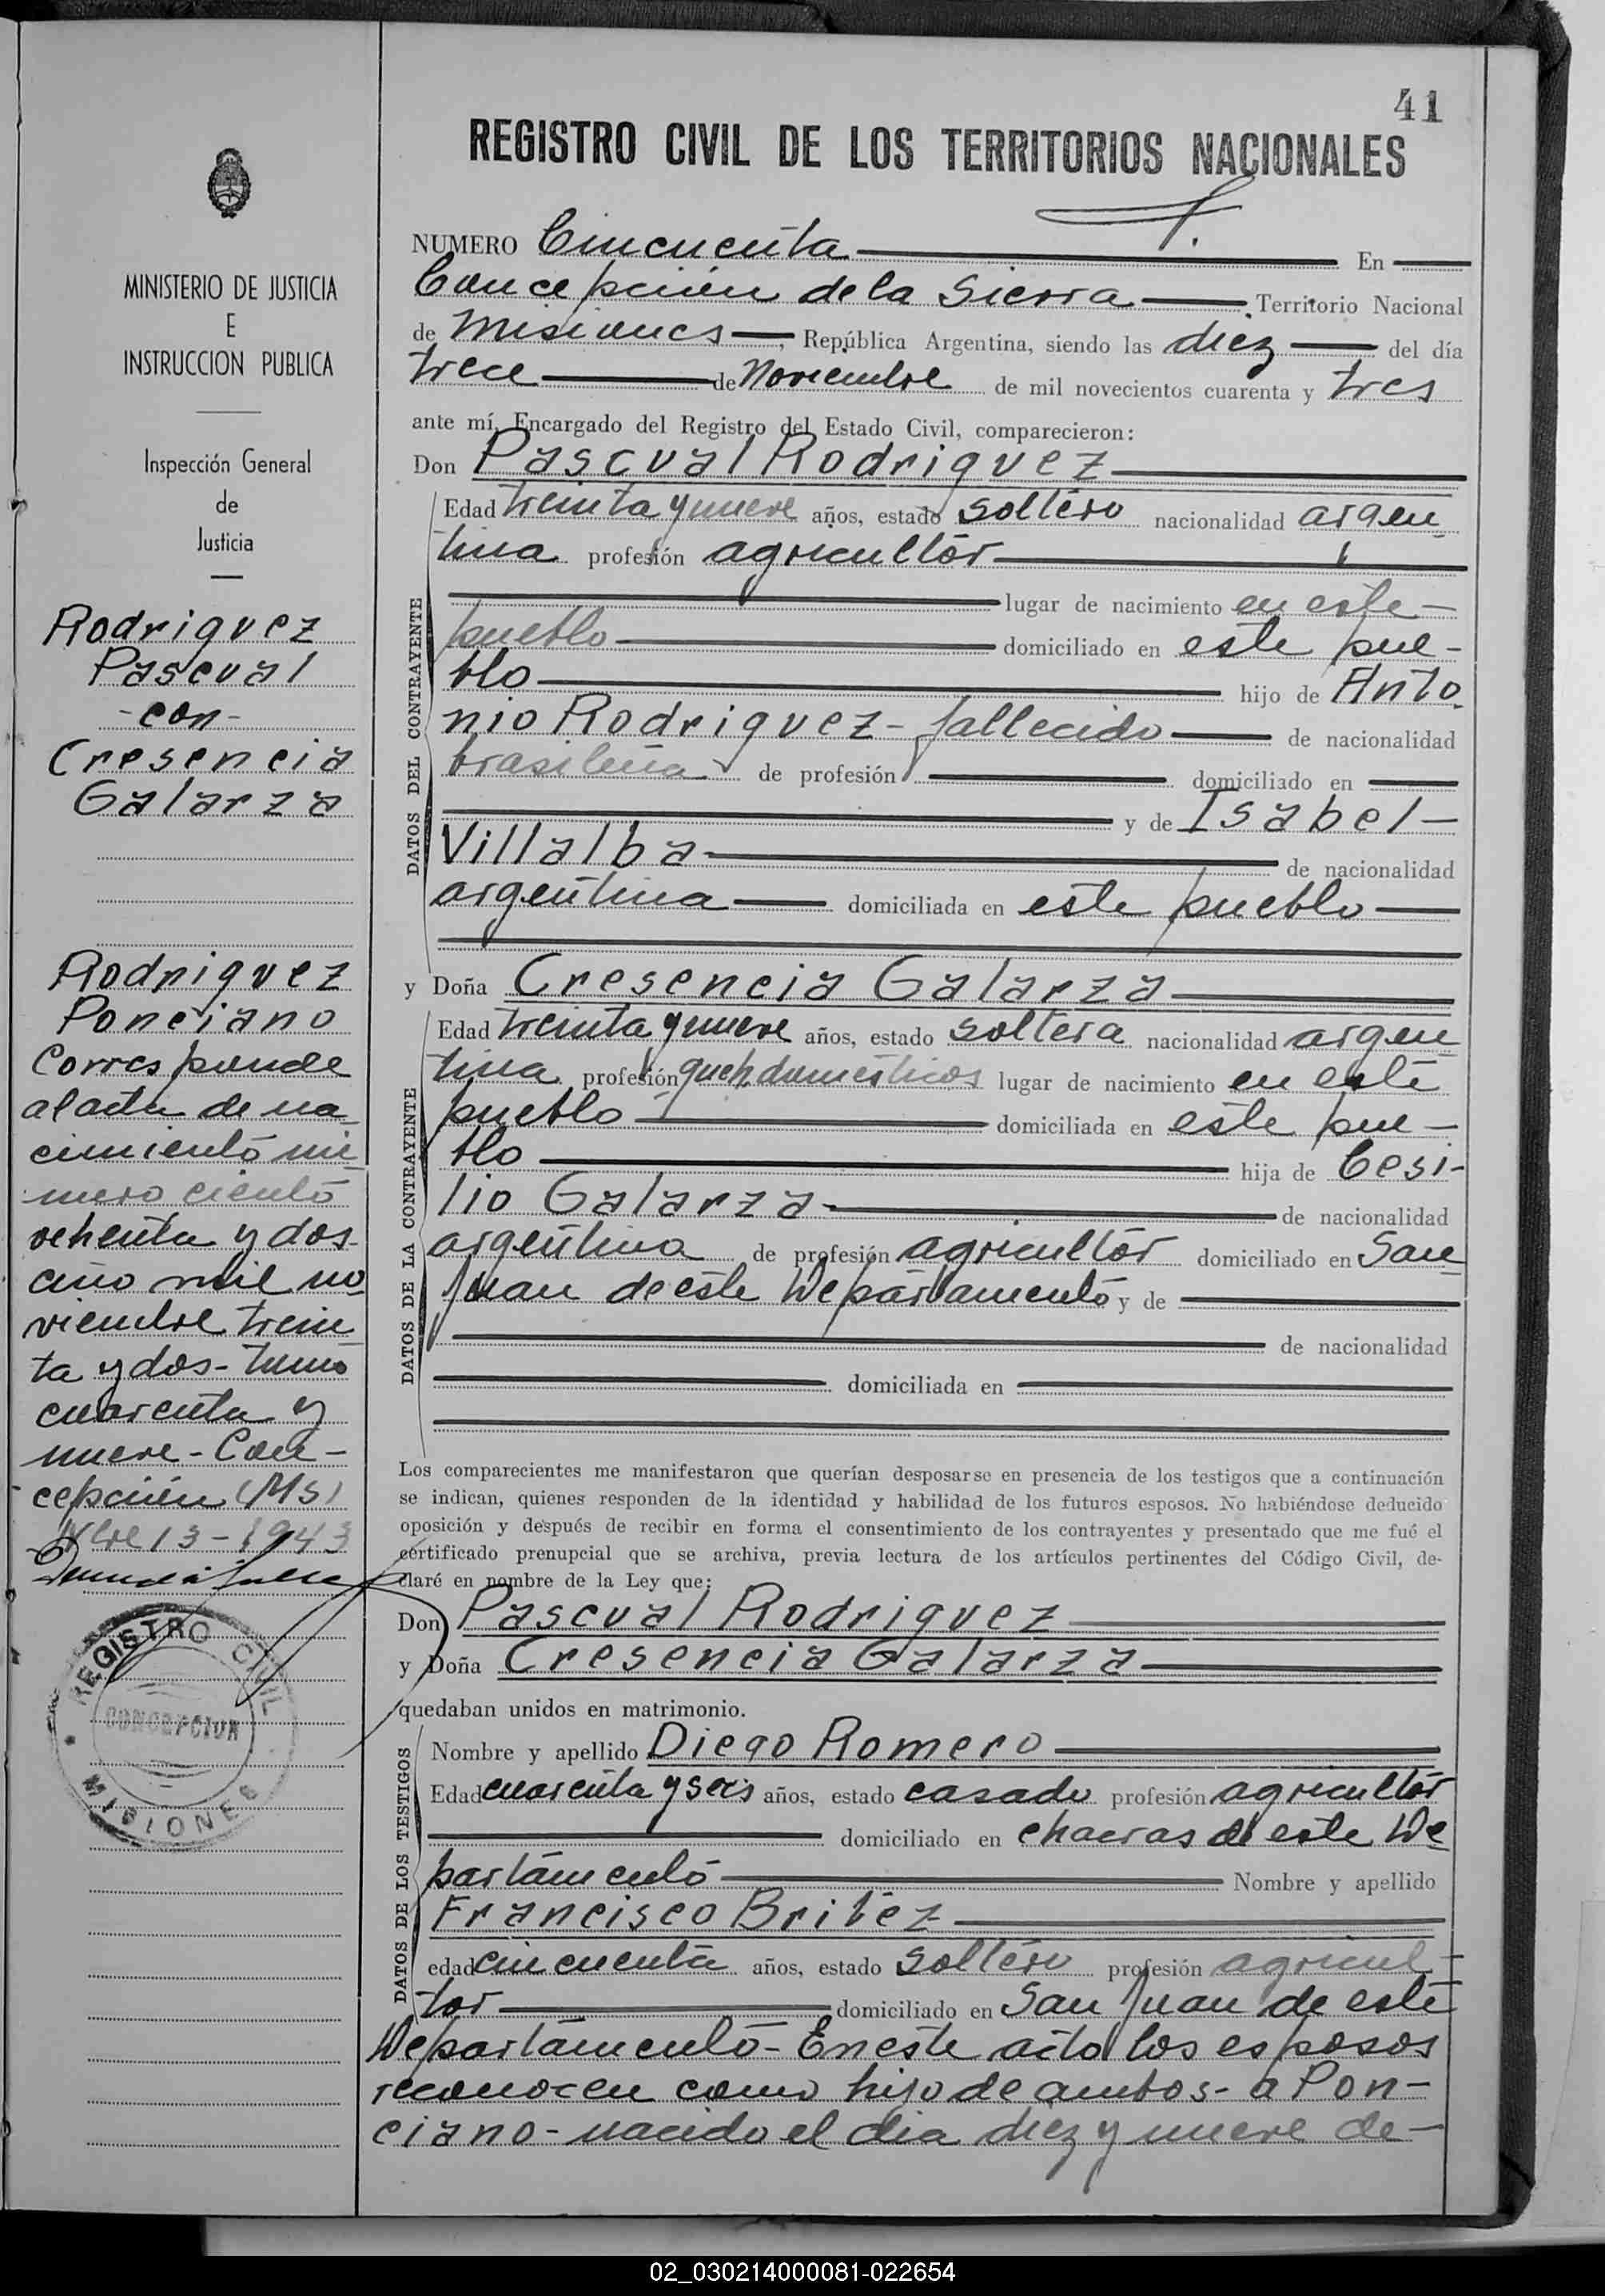 41
REGISTRO CIVIL DE LOS TERRITORIOS NACIONALES
MINISTERIO DE JUSTICIA
E
INSTRUCCION PUBLICA
Inspección General
de
Justicia
Rodriguez
Pascual
-con-
Cresencia
Galarza
Rodriguez
Ponciano
Corresponde
al acta de na
cimiento nú
mero ciento
ochenta y dos-
año mil no
viembre trein
ta y dos- tomo
cuarenta y
nueve - Con-
cepción (Ms)
Nbre 13-1943
REGISTRO CIVIL
CONCEPCION
MISIONES
NUMERO Cincuenta En
Concepción de la Sierra Territorio Nacional
de Misiones, República Argentina, siendo las diez del día
trece de Noviembre de mil novecientos cuarenta y tres
ante mí, Encargado del Registro del Estado Civil, comparecieron:
Don Pascual Rodriguez
DATOS DEL CONTRAYENTE
Edad treinta y nueve años, estado soltero nacionalidad argen
tina profesión agricultor
lugar de nacimiento en este
pueblo domiciliado en este pue-
blo hijo de Anto
nio Rodriguez - fallecido de nacionalidad
brasileña de profesión domiciliado en
y de Isabel
Villalba de nacionalidad
argentina domiciliada en este pueblo
y Doña Cresencia Galarza
DATOS DE LA CONTRAYENTE
Edad treinta y nueve años, estado soltera nacionalidad argen
tina profesión queh. domesticos lugar de nacimiento en este
pueblo domiciliada en este pue-
blo hija de Cesi-
lio Galarza de nacionalidad
argentina de profesión agricultor domiciliado en San
Juan de este Departamento y de
de nacionalidad
domiciliada en
Los comparecientes me manifestaron que querían desposarse en presencia de los testigos que a continuación
se indican, quienes responden de la identidad y habilidad de los futuros esposos. No habiéndose deducido
oposición y después de recibir en forma el consentimiento de los contrayentes y presentado que me fué el
certificado prenupcial que se archiva, previa lectura de los artículos pertinentes del Código Civil, de-
claré en nombre de la Ley que:
Don Pascual Rodriguez
y Doña Cresencia Galarza
quedaban unidos en matrimonio.
DATOS DE LOS TESTIGOS
Nombre y apellido Diego Romero
Edad cuarenta y seis años, estado casado profesión agricultor
domiciliado en chacras de este De
partamento Nombre y apellido
Francisco Britez
edad cincuenta años, estado soltero profesión agricul-
tor domiciliado en San Juan de este
Departamento - En este acto los esposos
reconocen como hijo de ambos - a Pon-
ciano - nacido el dia diez y nueve de-
02_030214000081-022654